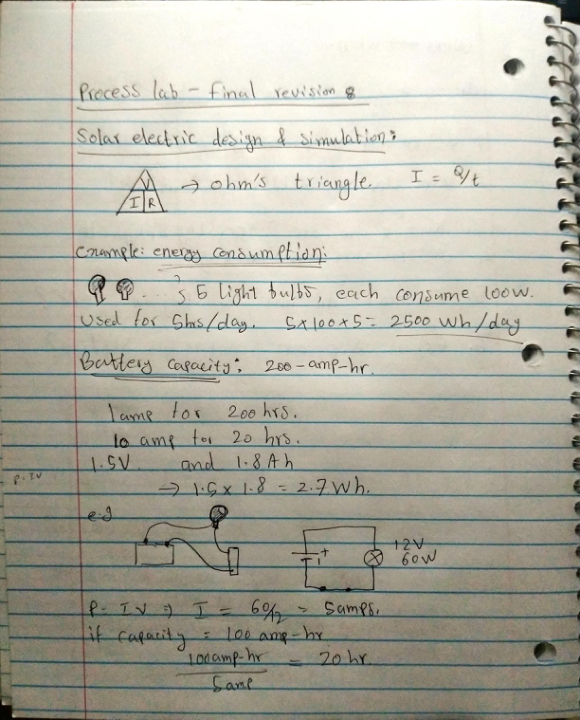 Process lab - final revision 8
Solar electric design & simulation:
V
I R → ohm's triangle. I = Q/t
Example: energy consumption:
... ; 5 light bulbs, each consume 100w.
Used for 5hrs/day. 5x100x5 = 2500 Wh/day
Battery capacity: 200-amp-hr.
1 amp for 200 hrs.
10 amp for 20 hrs.
1.5V and 1.8Ah
P=IV
→ 1.5 x 1.8 = 2.7 Wh.
e.g
+ 12V
60W
P = IV ⇒ I = 60/12 = 5amps.
if capacity = 100 amp-hr
100amp-hr = 20 hr.
5amp